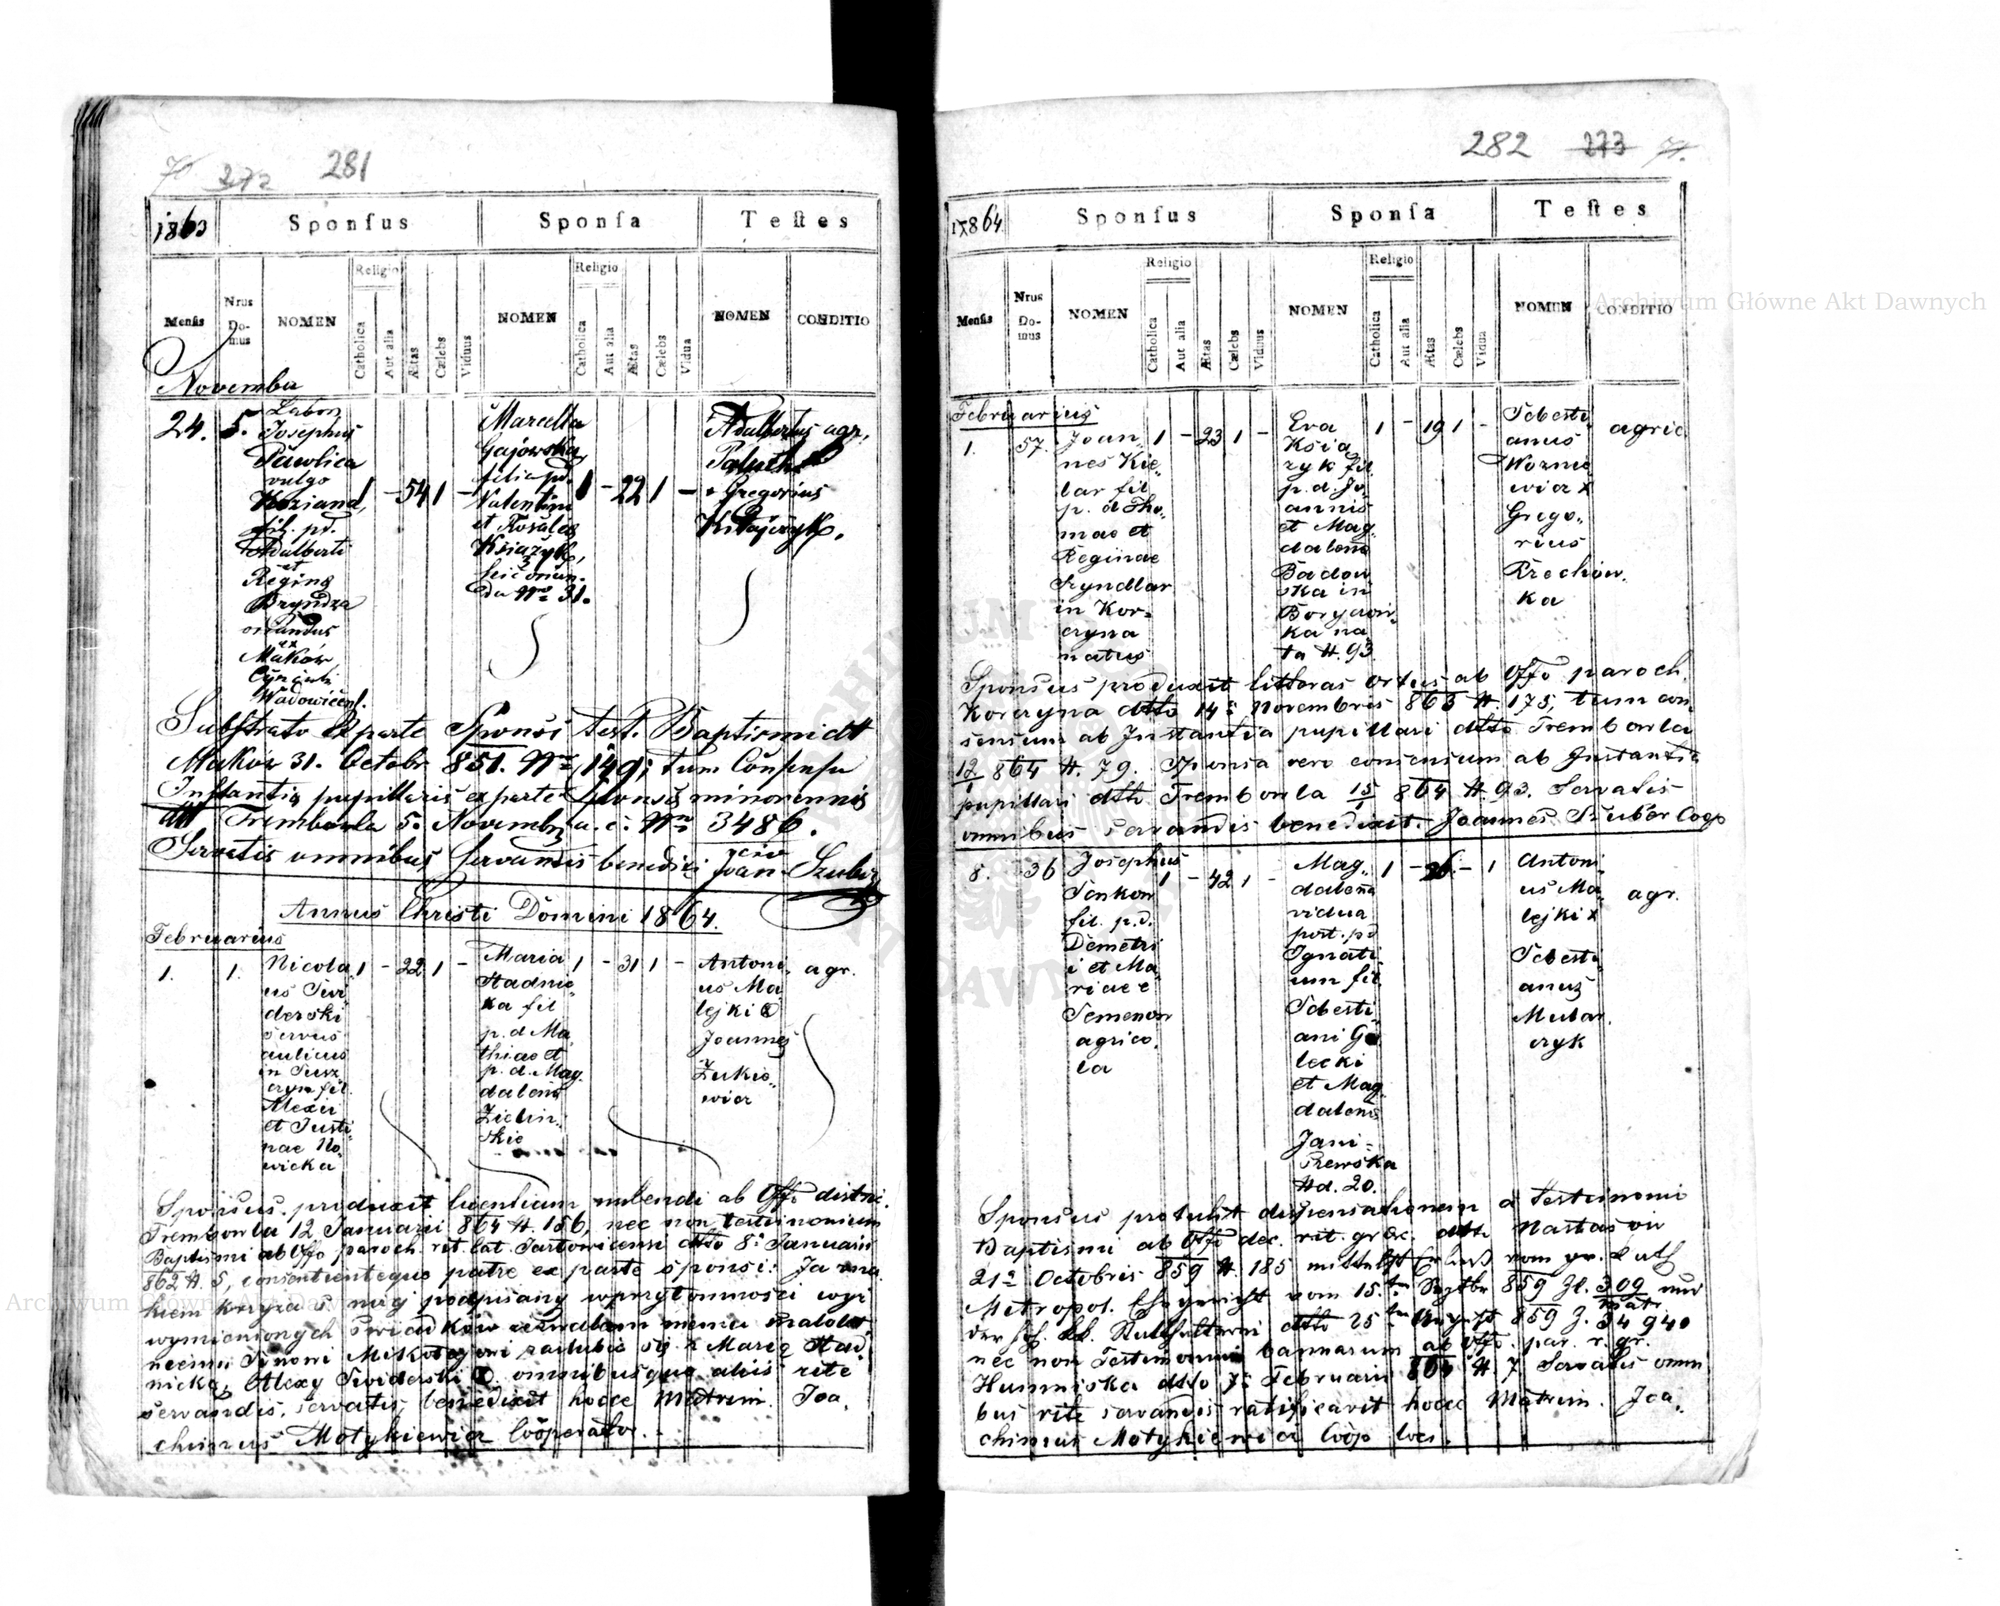 70 272 281
1863 Sponſus Sponſa Teſtes
Menſis Nrus Domus NOMEN Religio Catholica Aut alia Ætas Cælebs Viduus NOMEN Religio Catholica Aut alia Ætas Cælebs Vidua NOMEN CONDITIO
November
24. 5.
Josephus
Pawlica
vulgo
fil. pd.
Adalberti
et
Regina
Bryndza
oriundus
ex
Maków
Wadowicen.
1 - 54 1 -
Marcella
Gajowska
filia pd.
Valentini
et Rosalia
Książyk,
Nro 31.
1 - 22 1 -
Adalbertus agr.
Paluch
+ Gregorius
Substrato ex parte Sponsi test. Baptismi dtt
Maków 31. Octobr. 851. Nro 149; tum Consensu
Instantia pupillaris ex parte Sponsae minorennis
dtt Trembowla 5. Novembr. a. c. Nro 3486.
Servatis omnibus servandis benedixi Joan Szuber
Annus Christi Domini 1864.
Februarius
1. 1.
Nicola
us Swi
derski
servus
aulicus
in Susz
czyn fil.
Alexii
et Justi
nae No
wicka
1 - 22 1 -
Maria
Stadnic
ka fil
p. d Ma
thiae et
p. d. Mag
dalena
Zielin
skie
1 - 31 1 -
Antoni
us Ma
lejki
Joannes
Żukie
wicz
agr.
Sponsus produxit licentiam nubendi ab Offo distri.
Trembowla 12 Januarii 864 N. 156, nec non testimonium
Baptismi ab Offo paroch. rit. lat. dtto 8i Januarii
862 N. 5, consentienteque patre ex parte sponsi: Ja zna
kiem krzyża S. mię podpisany w przytomności wyż
wymienionych świadków zezwalam memu małolet
niemu Synowi Mikołajowi zaślubić się z Marią Stad
nicką Alexy Swiderski omnibusque aliis rite
servandis servatis, benedixit hocce Matrim. Joa
chimus Motykiewicz Cooperator.
282 273 71.
1864 Sponſus Sponſa Teſtes
Menſis Nrus Domus NOMEN Religio Catholica Aut alia Ætas Cælebs Viduus NOMEN Religio Catholica Aut alia Ætas Cælebs Vidua NOMEN CONDITIO
Februarius
1. 57.
Joan
nes Kie
lar fil
p. d Tho
mae et
Reginae
Szyndlar
in Kor
czyna
natus
1 - 23 1 -
Eva
Ksią
zyk fil
p. d. Jo
annis
et Mag
dalena
Badow
ska in
Boryczów
ka na
ta N. 93
1 - 19 1 -
Sebesti
anus
Woznie
wicz x
Grego
rius
Orechow
ka
agric.
Sponsus produxit litteras ortus ab Offo paroch.
Korczyna dtto 14i Novembris 863 N. 175, tum con
sensum ab Instantia pupillari dtto Trembowla
12/1 864 N. 79. Sponsa vero consensum ab Instantia
pupillari dtto Trembowla 15/1 864 N. 93. Servatis
omnibus servandis benedixit. Joannes Szuber Coop
8. 36
Josephus
Senkow
fil. p. d.
Demetri
i et Ma
riae e
Semenow
agrico
la
1 - 42 1 -
Mag
dalena
vidua
post. pd
Ignati
um fil
Sebesti
ani Go
lecki
et Mag
dalena
Jani
szewska
Nd. 20.
1 - 26 - 1
Antoni
us Ma
lejki x
Sebesti
anus
Mular
czyk
agr.
Sponsus protulit dispensationem a Testimoni
Baptismi ab Offo dec. rit. gr. c. dtto Nastasow
21a Octobris 859 N. 185 mittelst Erlaß vom gr. kath
Metropol. Ehegericht vom 15.ten Septbr 859 Zl. 309 und
der hoh. kk. Statthalterei dtto 25ten August 859 Z. 34940
nec non Testimonium bannorum ab Offo. par. r. gr.
Humniska dtto 7i Februarii 864 N. 7 Servatis omni
bus rite servandis ratificavit hocce Matrim. Joa
chimus Motykiewicz Coop loci.
Archiwum Główne Akt Dawnych
Archiwum Główne Akt Dawnych